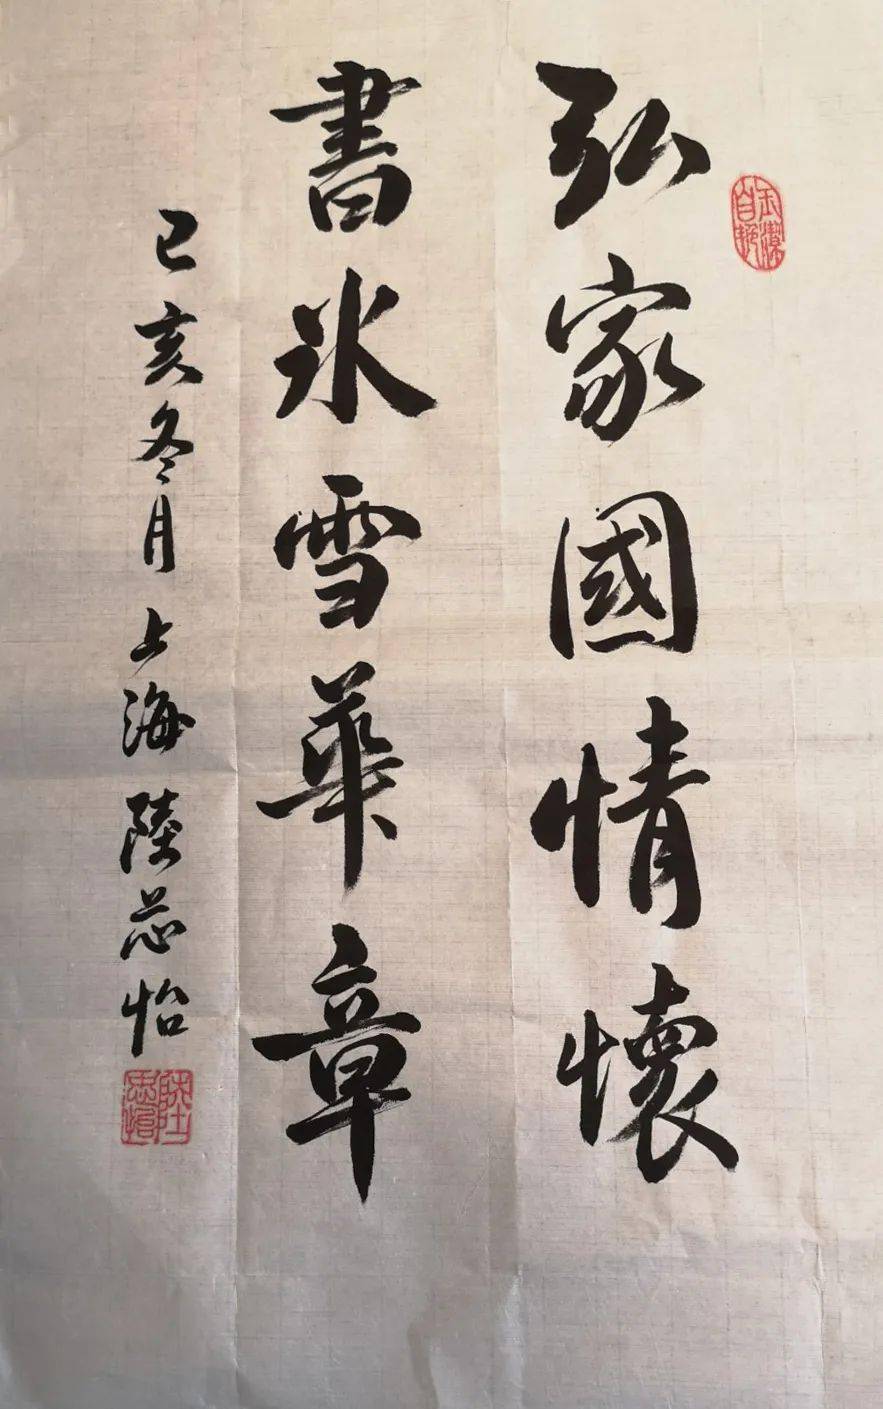 弘家國情懷
書冰雪華章
己亥冬月上海陸蕊怡